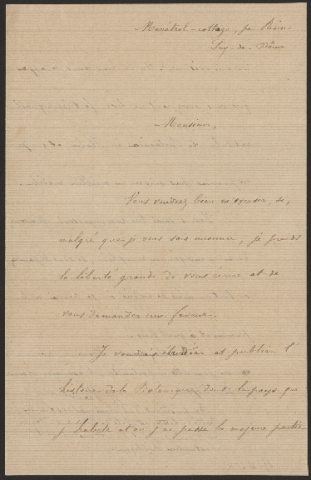 Menétrol-collage, par Riom
Puy-de-Dôme
Monsieur,
Vous voudrez bien m'excuser, si,
malgré que je vous sois inconnu, je prends
la liberté grande de vous écrire et de
vous demander une faveur.
Je voudrais étudier et publier l'
histoire de la Botanique dans le pays que
j'habite et où j'ai passé la majeure partie